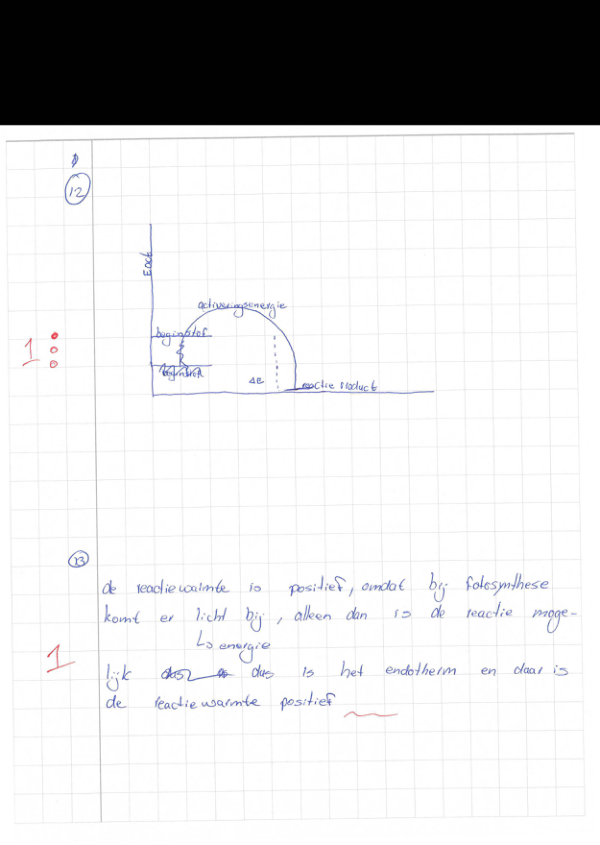 12
Eact
activeringsenergie
beginstof
beginstof
ΔE
reactie product
1
13
de reactiewarmte is positief, omdat bij fotosynthese
komt er licht bij, alleen dan is de reactie moge-
↳ energie
1
lijk dus is het endotherm en daar is
de reactiewarmte positief